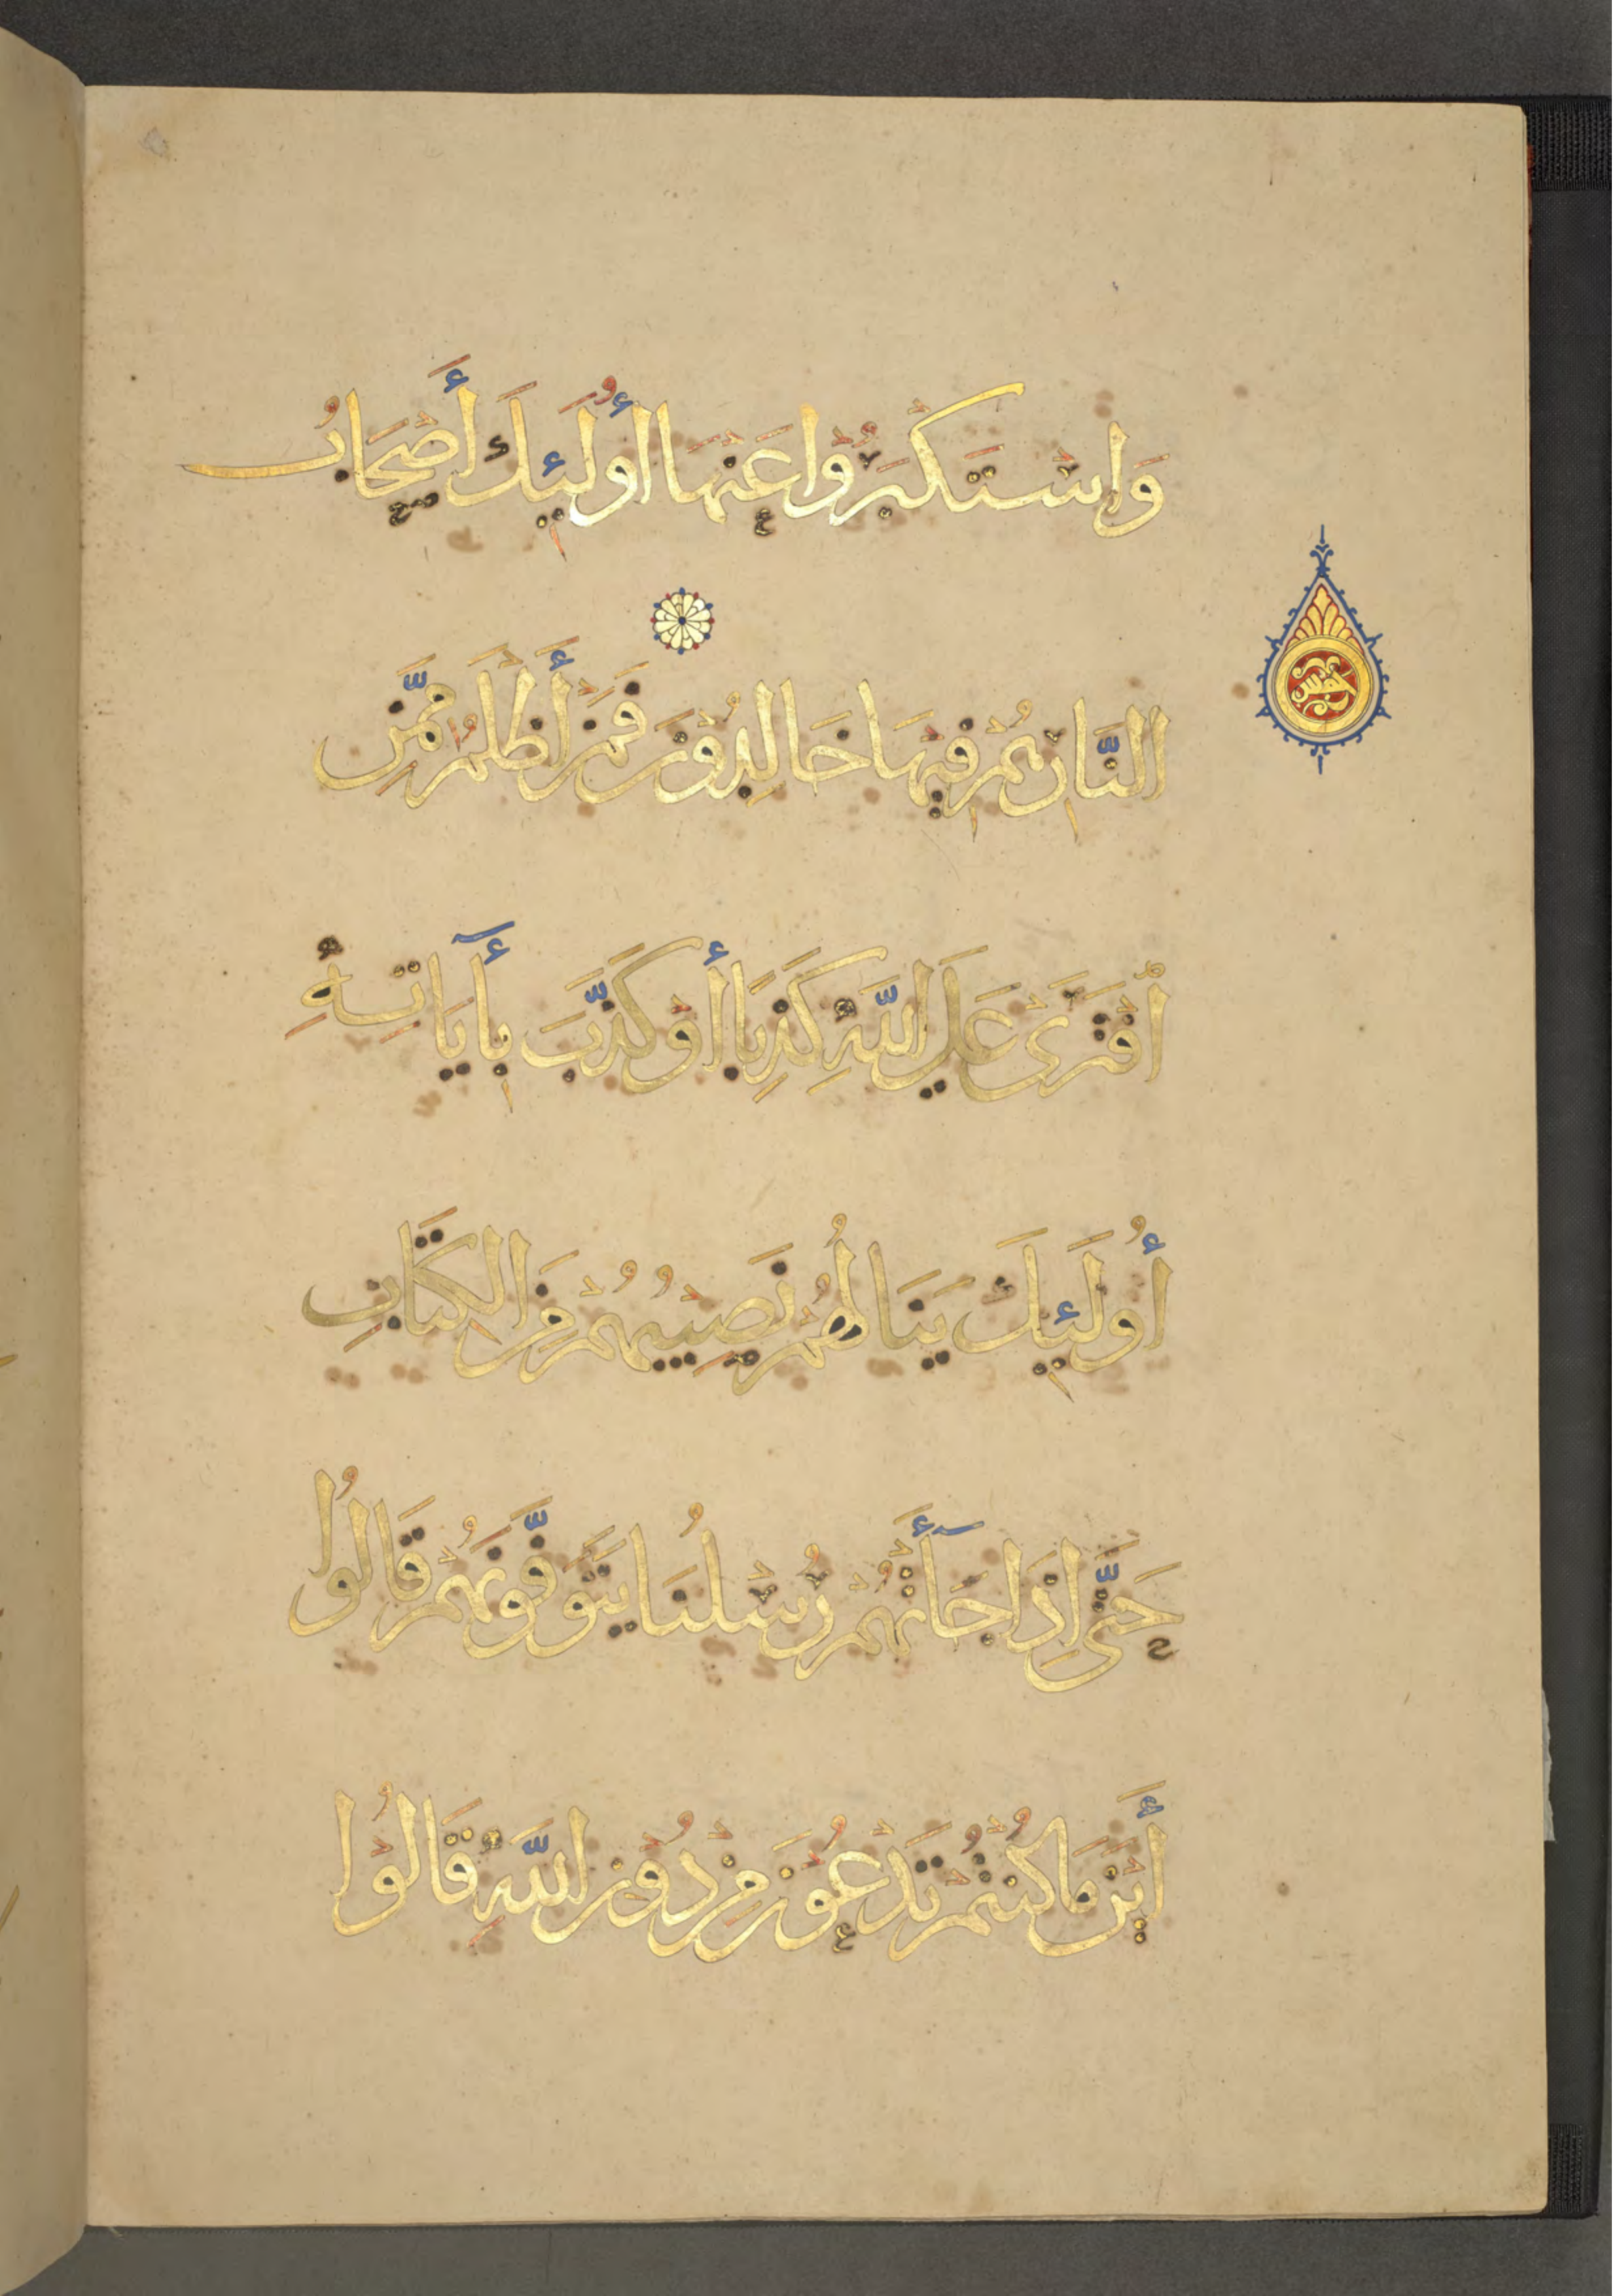 وَاسْتَكْبَرُوْا عَنْهَا أُولَئِكَ أَصْحَابُ
النَّارِ هُمْ فِيهَا خَالِدُوْنَ فَمَنْ أَظْلَمُ مِمَّنِ
اْفْتَرَىٰ عَلَى اللَّهِ كَذِبًا أَوْ كَذَّبَ بِأَيَاتِهِ
أُولَئِكَ يَنَالُهُمْ نَصِيْبُهُمْ مِنَ الْكِتَابِ
حَتَّى إِذَا جَآءَتْهُمْ رُسْلُنَا يَتَوَفَّوْنَهُمْ قَالُوا
أَيْنَ مَا كُنْتُمْ تَدْعُوْنَ مِنْ دُوْنِ اللَّهِ قَالُوْا
خمس